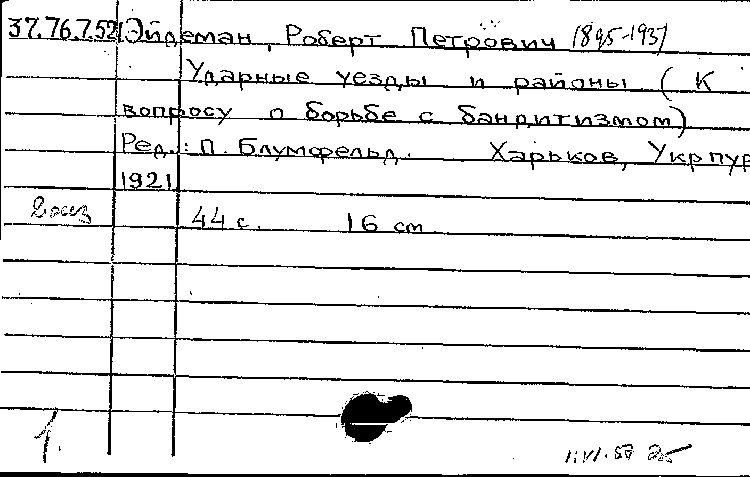 37.76.7.52 Эйдеман, Роберт Петрович 1895-1937
Ударные уезды и районы (К
вопросу о борьбе с бандитизмом)
Ред.: П. Блумфельд. Харьков, Укрпур
1921
2 экз 44 с. 16 см
1.